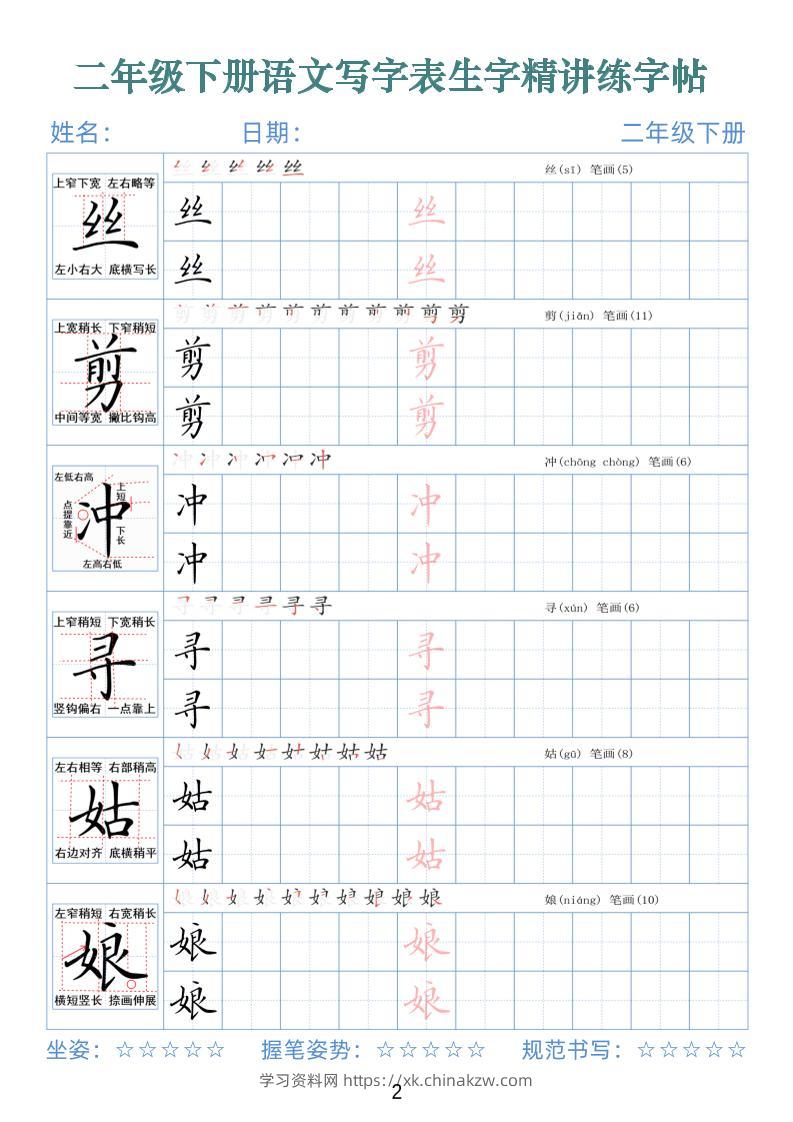 二年级下册语文写字表生字精讲练字帖
姓名： 日期： 二年级下册
丝(sī) 笔画(5)
上窄下宽 左右略等
丝
左小右大 底横写长
丝 丝
丝 丝
剪(jiǎn) 笔画(11)
上宽稍长 下窄稍短
剪
中间等宽 撇比钩高
剪 剪
剪 剪
冲(chōng chòng) 笔画(6)
左低右高
上短
点提靠近
冲
下长
左高右低
冲 冲
冲 冲
寻(xún) 笔画(6)
上窄稍短 下宽稍长
寻
竖钩偏右 一点靠上
寻 寻
寻 寻
姑(gū) 笔画(8)
左右相等 右部稍高
姑
右边对齐 底横稍平
姑 姑
姑 姑
娘(niáng) 笔画(10)
左窄稍短 右宽稍长
娘
横短竖长 捺画伸展
娘 娘
娘 娘
坐姿：☆☆☆☆☆ 握笔姿势：☆☆☆☆☆ 规范书写：☆☆☆☆☆
学习资料网 https://xk.chinakzw.com
2